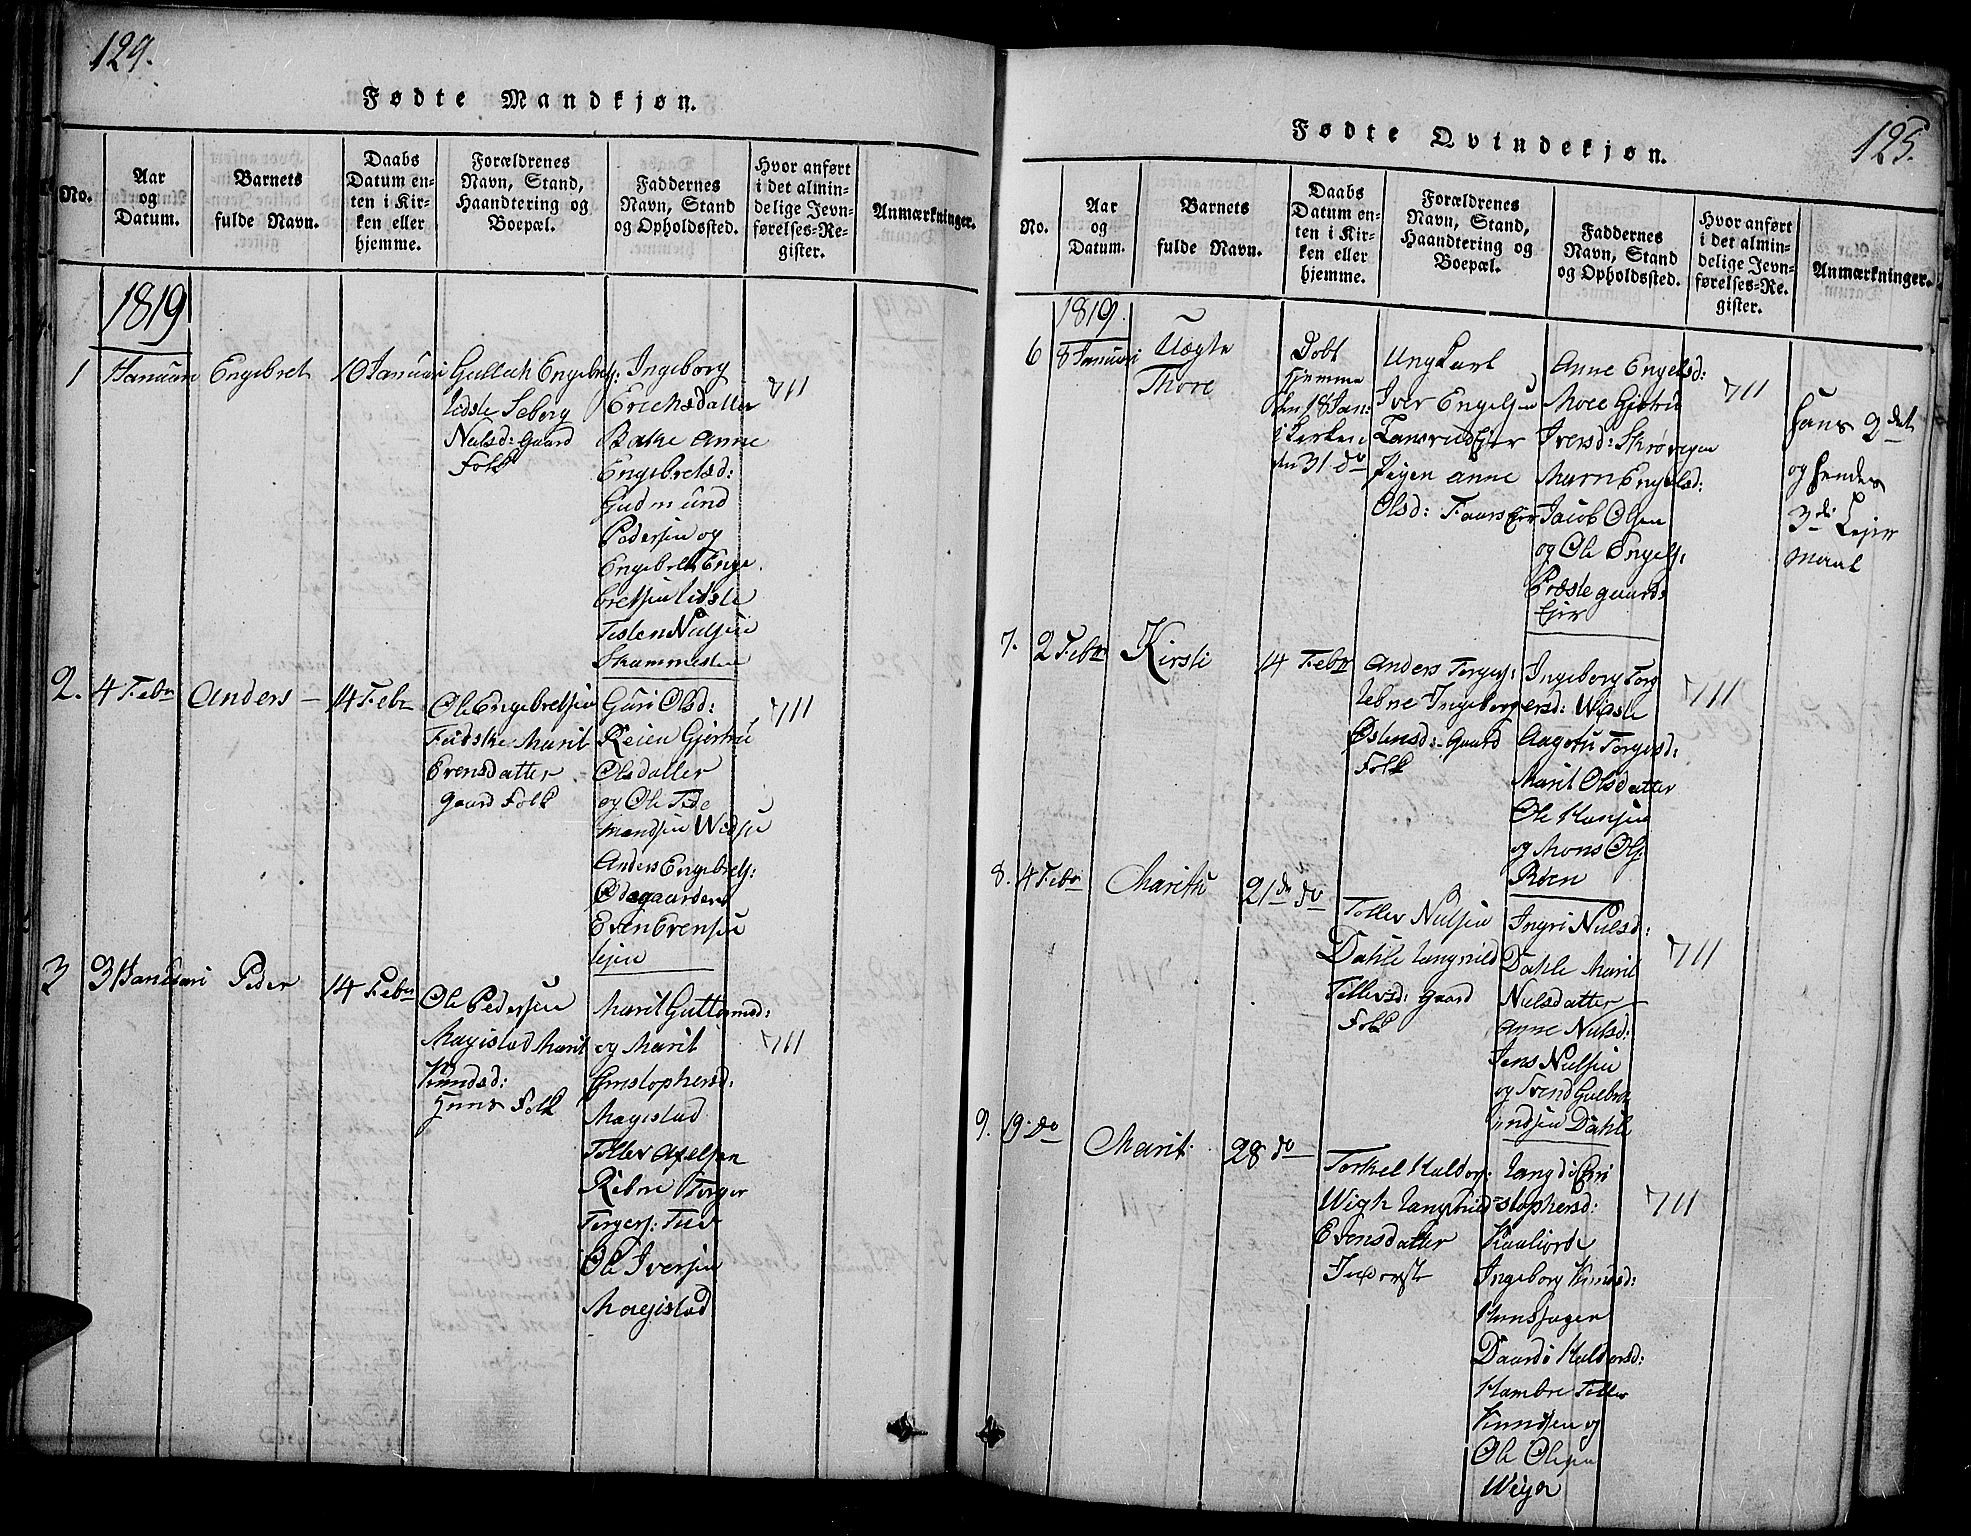 129.
Fødte Mandkjøn.
No.
Aar
og
Datum.
Barnets
fulde Navn.
Daabs
Datum en-
ten i Kir-
ken eller
hjemme.
Forældrenes
Navn, Stand,
Haandtering og
Boepæl.
Faddernes
Navn, Stand
og Opholdssted.
Hvor anført
i det almin-
delige Jevn-
førelses-Re-
gister.
Anmærkninger.
1819
1
1 Januari
Engebret
10 Januari
Gullech Engebrets:
Seborg
Nulsd: Gaard
Folk
Ingeborg
Erichsdatter
Bakke Anne
Engebretsd:
Gudmund
Pedersen og
Engebret Enge
bretsen
Nulsen
711
2.
4 Febr
Anders
14 Febr
Ole Engebretsen
Marit
Evensdatter
gaard Folk
Guri Olsd:
Reien Gjertru
Olsdatter
og Ole Tide
mandsen
Anders Engebrets:
Ødegaarden
Even Evensen
711
3
3 Januari
Peder
14 Febr
Ole Pedersen
Magistad Marit
Knudsd:
Huus Folk
Marit Guttormsd:
og Marit
Cristophersd:
Magistad
Toller Axelsen
Rebne Torger
Torgers:
Ole Iversen
Magistad
711
125.
Fødte Qvindekjøn.
No.
Aar
og
Datum.
Barnets
fulde Navn.
Daabs
Datum en-
ten i Kir-
ken eller
hjemme.
Forældrenes
Navn, Stand,
Haandtering og
Boepæl.
Faddernes
Navn, Stand
og Opholdssted.
Hvor anført
i det almin-
delige Jevn-
førelses-Re-
gister.
Anmærkninger.
1819.
6
8 Januari
Uægte
Thore
Døbt
hjemme
den 18 Jan:
i Kirken
den 31 do
Ung Karl
Iver Engelsen
Pigen Anne
Olsd:
Anne Engelsd:
Moee Gjertru
Iversd: Skrøvegen
Marn Engelsd:
Jacob Olsen
og Ole Engels:
Præstegaards
Ejer
711
hans 2det
og hendes
3di Leier
maal
7.
2 Febr
Kirsti
14 Febr
Anders Torgers:
Ingeborg
Østensd: Gaard
Folk
Ingeborg Torg
ersd:
Aagotu Torgersd:
Marit Olsdatter
Ole Hansen
og Mons Ols:
Røen
711
8.
4 Febr
Maritu
21de do
Toller Nulsen
Dahle Langnild
Tollersd: Gaard
Folk
Ingri Nulsd:
Dahle Marit
Nulsdatter
Anne Nulsd:
Jens Nulsen
og Svend Gulbra
ndsen Dahle
711
9.
19 do
Marit
28 do
Torkel Haldors:
Wigh Langnild
Evensdatter
Inderst
Langdi Cri
stophersd:
Ingeborg Knudsd:
Haldorsd:
Hambre Toller
Knudsen og
Ole Olsen
711